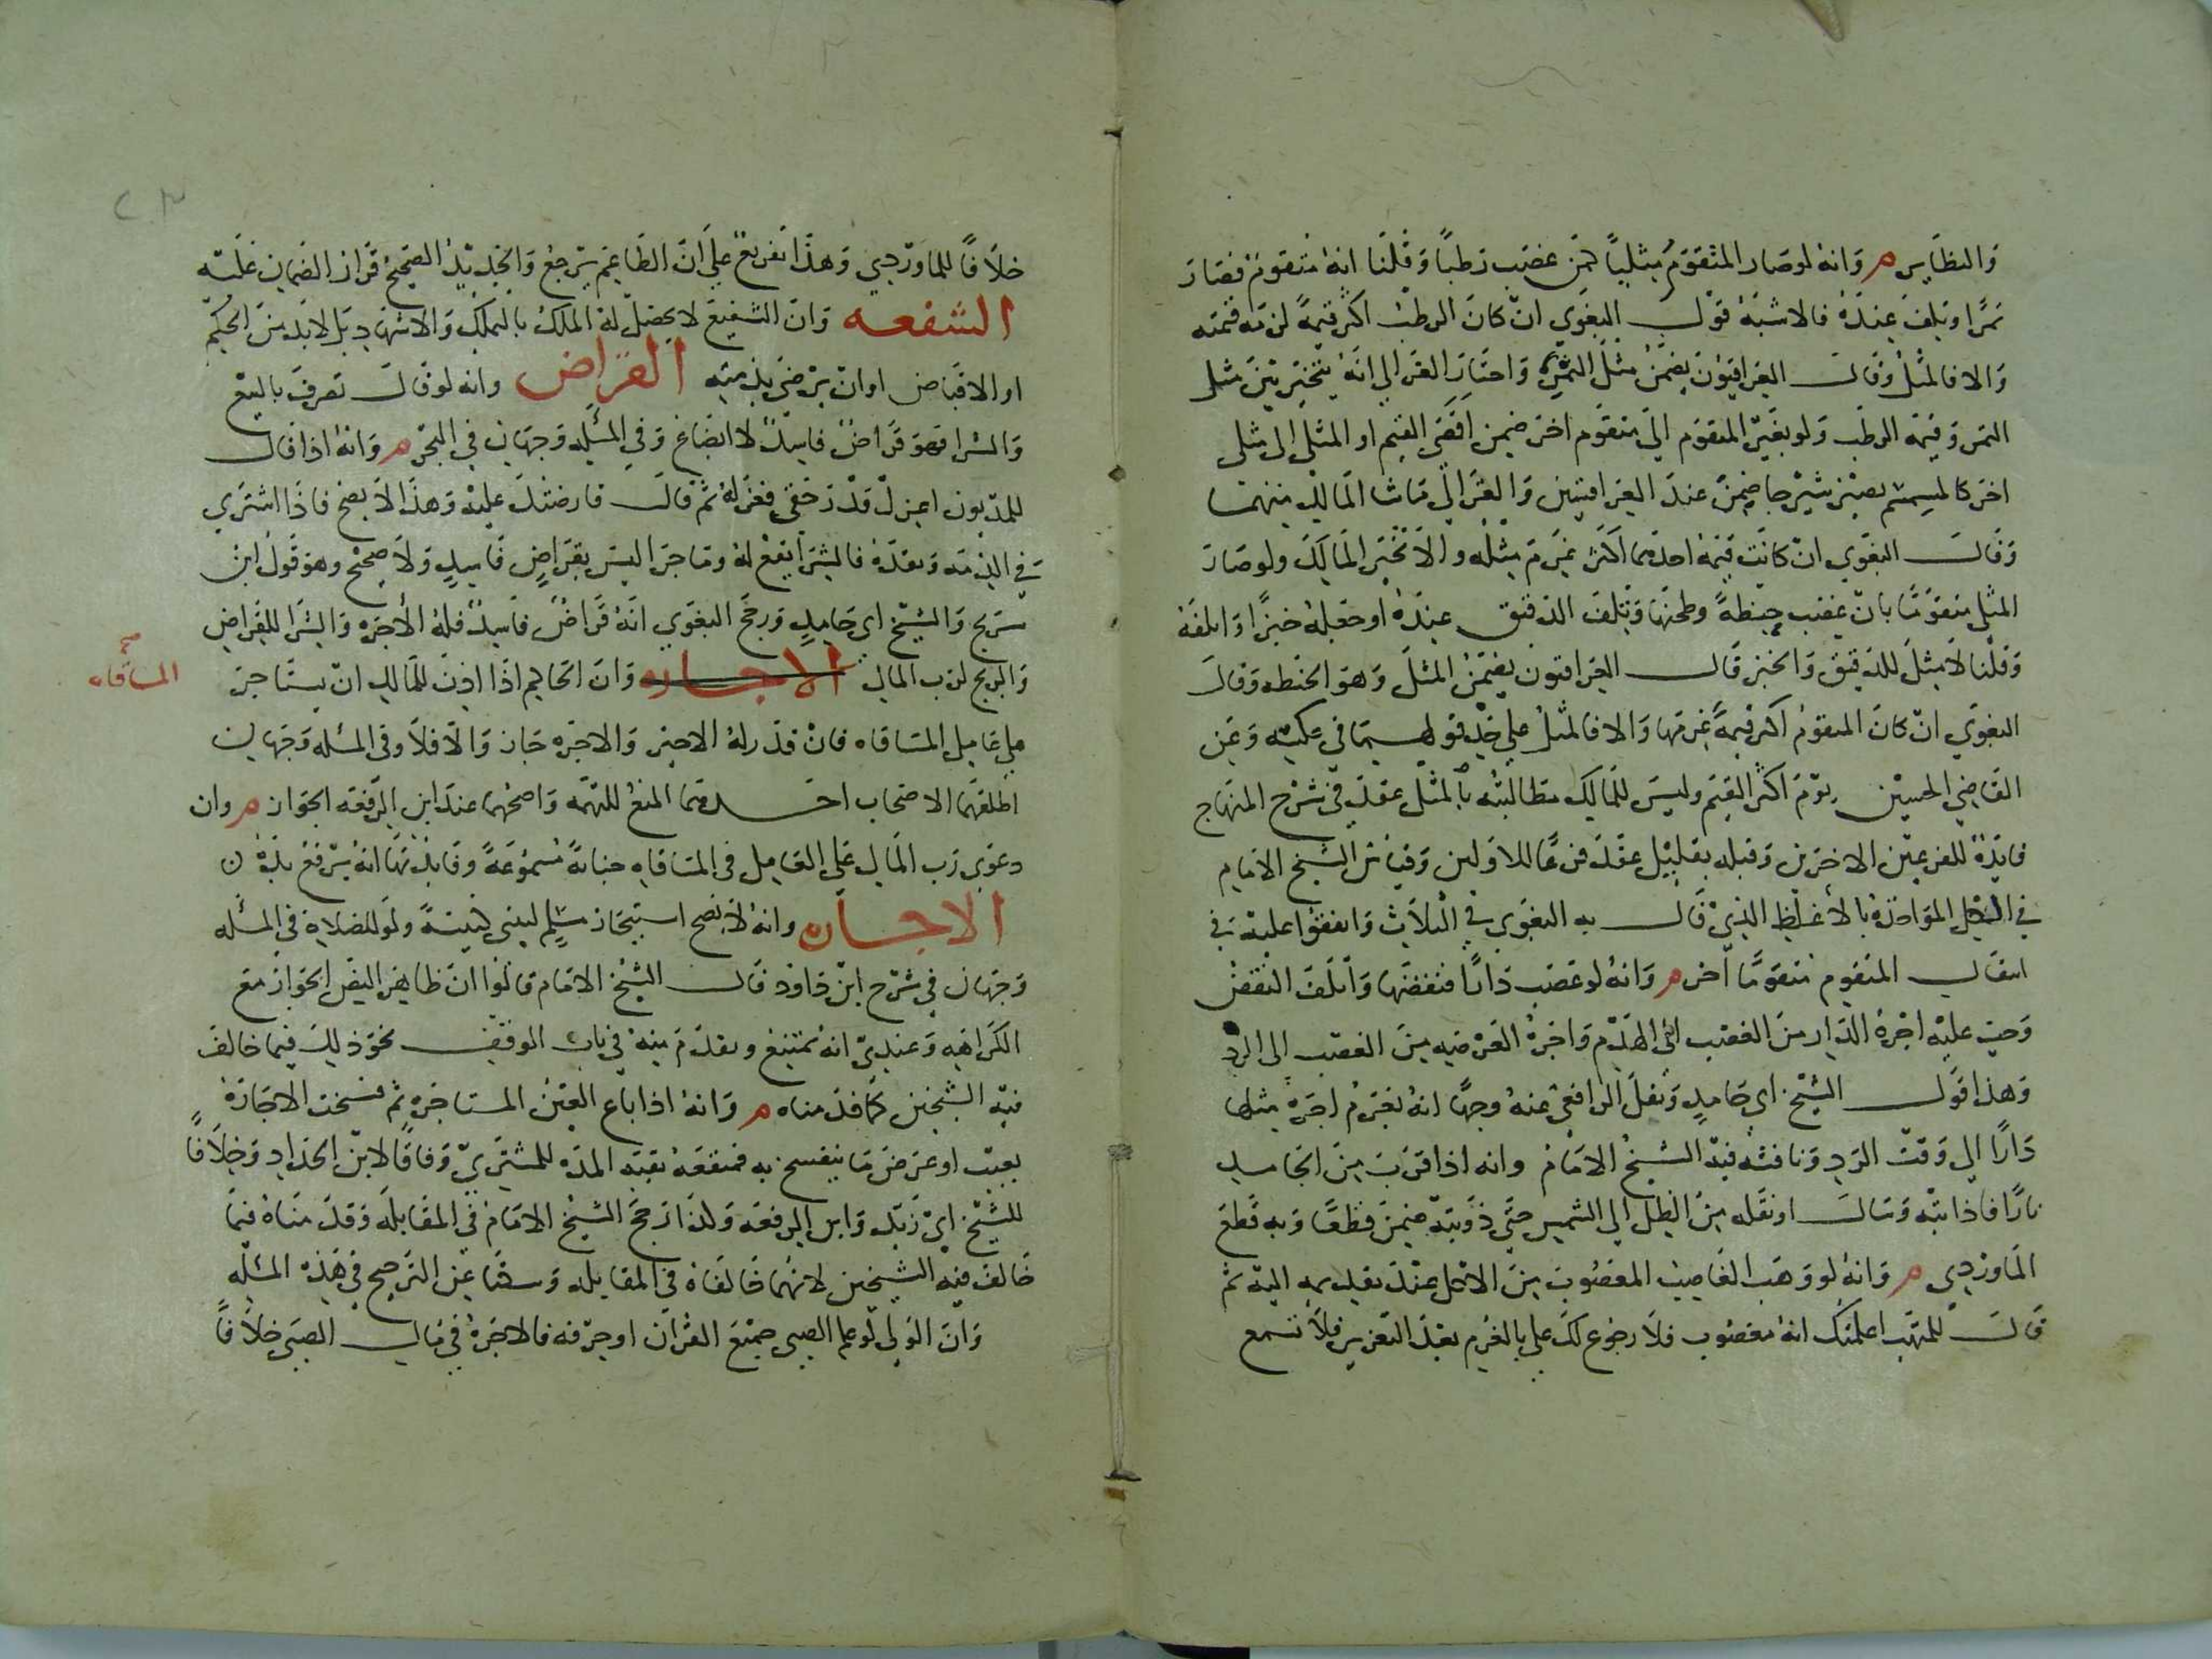 والنظاير م وانه لو صار المتقوم مثليا كمن غصب رطبا وقلنا انه متقوم فصار
تمرا وتلف عنده فالاشبه قول البغوي ان كان الرطب اكثر قيمة لزمه قيمته
والا فالمثل وقال العراقيون يضمن مثل التمر واختار الغزالي انه يتخير بين مثل
التمر وقيمة الرطب ولو تغير المتقوم الى متقوم اخر ضمن اقصى القيم او المثلي الى مثلي
اخر كالسمسم يصير شيرجا ضمن عند العراقيين والغزالي ما شا المالك منهما
وقال البغوي ان كانت قيمة احدهما اكثر غرم مثله والا تخير المالك ولو صار
المثلي متقوما بان غصب حنطة وطحنها وتلف الدقيق عنده او جعله خبزا واتلفه
وقلنا لا مثل للدقيق والخبز قال العراقيون يضمن المثل وهو الحنطه وقال
البغوي ان كان المتقوم اكثر قيمة غرمها والا فالمثل على حد قوليهما في عكسه وعن
القاضي الحسين يوم اكثر القيم وليس للمالك مطالبته بالمثل عقد في شرح المنهاج
فايدة للفرعين الاخرين وقبله بقليل عقد فرعا للاولين وقياس الشيخ الامام
في الكل المواخذة بالاغلظ الذي قال به البغوي في الثلاث واتفقوا عليه في
انتقال المتقوم متقوما اخر م وانه لو غصب دارا فنقضها واتلف النقض
وجب عليه اجرة الدار من الغصب الى الهدم واجرة العرصه من الغصب الى الرد
وهذا قول الشيخ ابي حامد ونقل الرافعي عنه وجها انه يغرم اجرة مثلها
دارا الى وقت الرد ونافثه فيه الشيخ الامام وانه اذا قرب من الجامد
نارا فاذابته وسال او نقله من الظل الى الشمس حتى ذوبته ضمن قطعا وبه قطع
الماوردي م وانه لو وهب الغاصب المغصوب من الاكل عند تقديمه اليه ثم
قال للمتهب اعلمتك انه مغصوب فلا رجوع لك علي بالغرم بعد التغرير فلا تسمع
خلافا للماوردي وهذا تفريع على ان الطاعم يرجع والجديد الصحيح قرار الضمان عليه
الشفعه وان الشفيع لا يحصل له الملك بالتملك والاشهاد بل لا بد من الحكم
او الاقباض او ان يرضى بذمته القراض وانه لو قال تصرف بالبيع
والشرا فهو قراض فاسد لا ابضاع وفي المسئله وجهان في البحر م وانه اذا قال
للمديون اعزل قدر حقي فعزله ثم قال قارضتك عليه وهذا لا يصح فاذا اشترى
في الذمه ونقده فالشرا يقع له وما جرا ليس بقراض فاسد ولا صحيح وهو قول ابن
سريج والشيخ ابي حامد ورجح البغوي انه قراض فاسد فله الاجره والشرا للقراض
والربح لرب المال الاجاره وان الحاكم اذا اذن للمالك ان يستاجر
صح
المساقاه
على عامل المساقاه فان قدر له الاجير والاجره جاز والا فلا وفي المسله وجهان
اطلقهما الاصحاب احدهما المنع للتهمه واصحهما عند ابن الرفعه الجواز م وان
دعوى رب المال على العامل في المساقاه جناية مسموعة وفايدتها انه يرفع يده ن
الاجاره وانه لا يصح استيجار مسلم لبني كنيسة ولو للصلاة في المسله
وجهان في شرح ابن داود قال الشيخ الامام قالوا ان ظاهر النص الجواز مع
الكراهيه وعندي انه ممتنع وتقدم منه في باب الوقف نحو ذلك فيما خالف
فيه الشيخين كما قدمناه م وانه اذا باع العين المستاجره ثم فسخت الاجاره
بعيب او عرض ما ينفسخ به فمنفعة بقية المده للمشتري وفاقا لابن الحداد وخلافا
للشيخ ابي زيد وابن الرفعه ولذا رجح الشيخ الامام في المقابله وقدمناه فيما
خالف فيه الشيخين لانهما خالفاه في المقابله وسكتا عن الترجيح في هذه المسله
وان الولي لو علم الصبي جميع القران او حرفه فالاجرة في مال الصبي خلافا